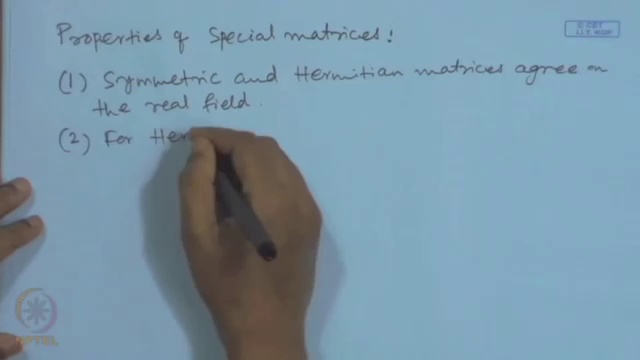 Properties of Special matrices:
© CET
I.I.T. KGP
(1) Symmetric and Hermitian matrices agree on
the real field.
(2) For Her
NPTEL